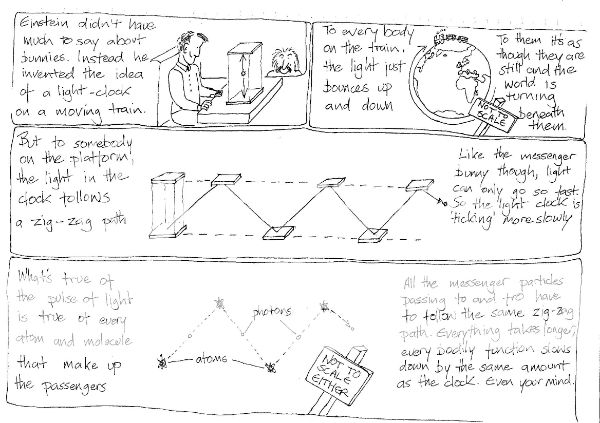 Einstein didn't have
much to say about
bunnies. Instead he
invented the idea
of a light-clock
on a moving train.
To every body
on the train,
the light just
bounces up
and down
To them it's as
though they are
still and the
world is
turning
beneath
them.
NOT TO
SCALE
But to somebody
on the platform,
the light in the
clock follows
a zig-zag path
Like the messenger
bunny though, light
can only go so fast.
So the light clock is
'ticking' more slowly
What's true of
the pulse of light
is true of every
atom and molecule
that make up
the passengers
photons
atoms
NOT TO
SCALE
EITHER
All the messenger particles
passing to and fro have
to follow the same zig-zag
path. Everything takes longer,
every bodily function slows
down by the same amount
as the clock. Even your mind.